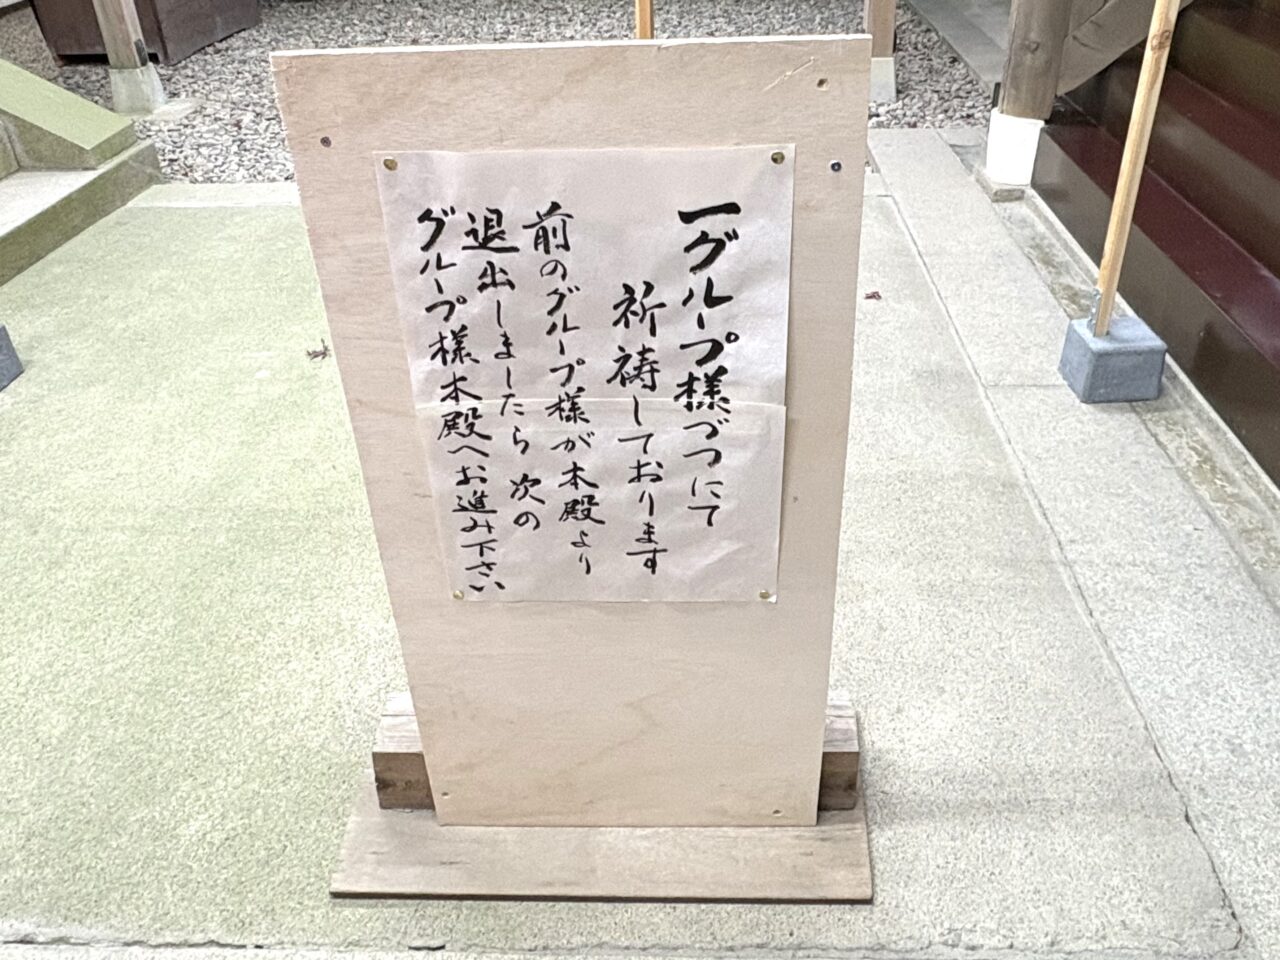 一グループ様づつにて
祈祷しております
前のグループ様が本殿より
退出しましたら次の
グループ様本殿へお進み下さい